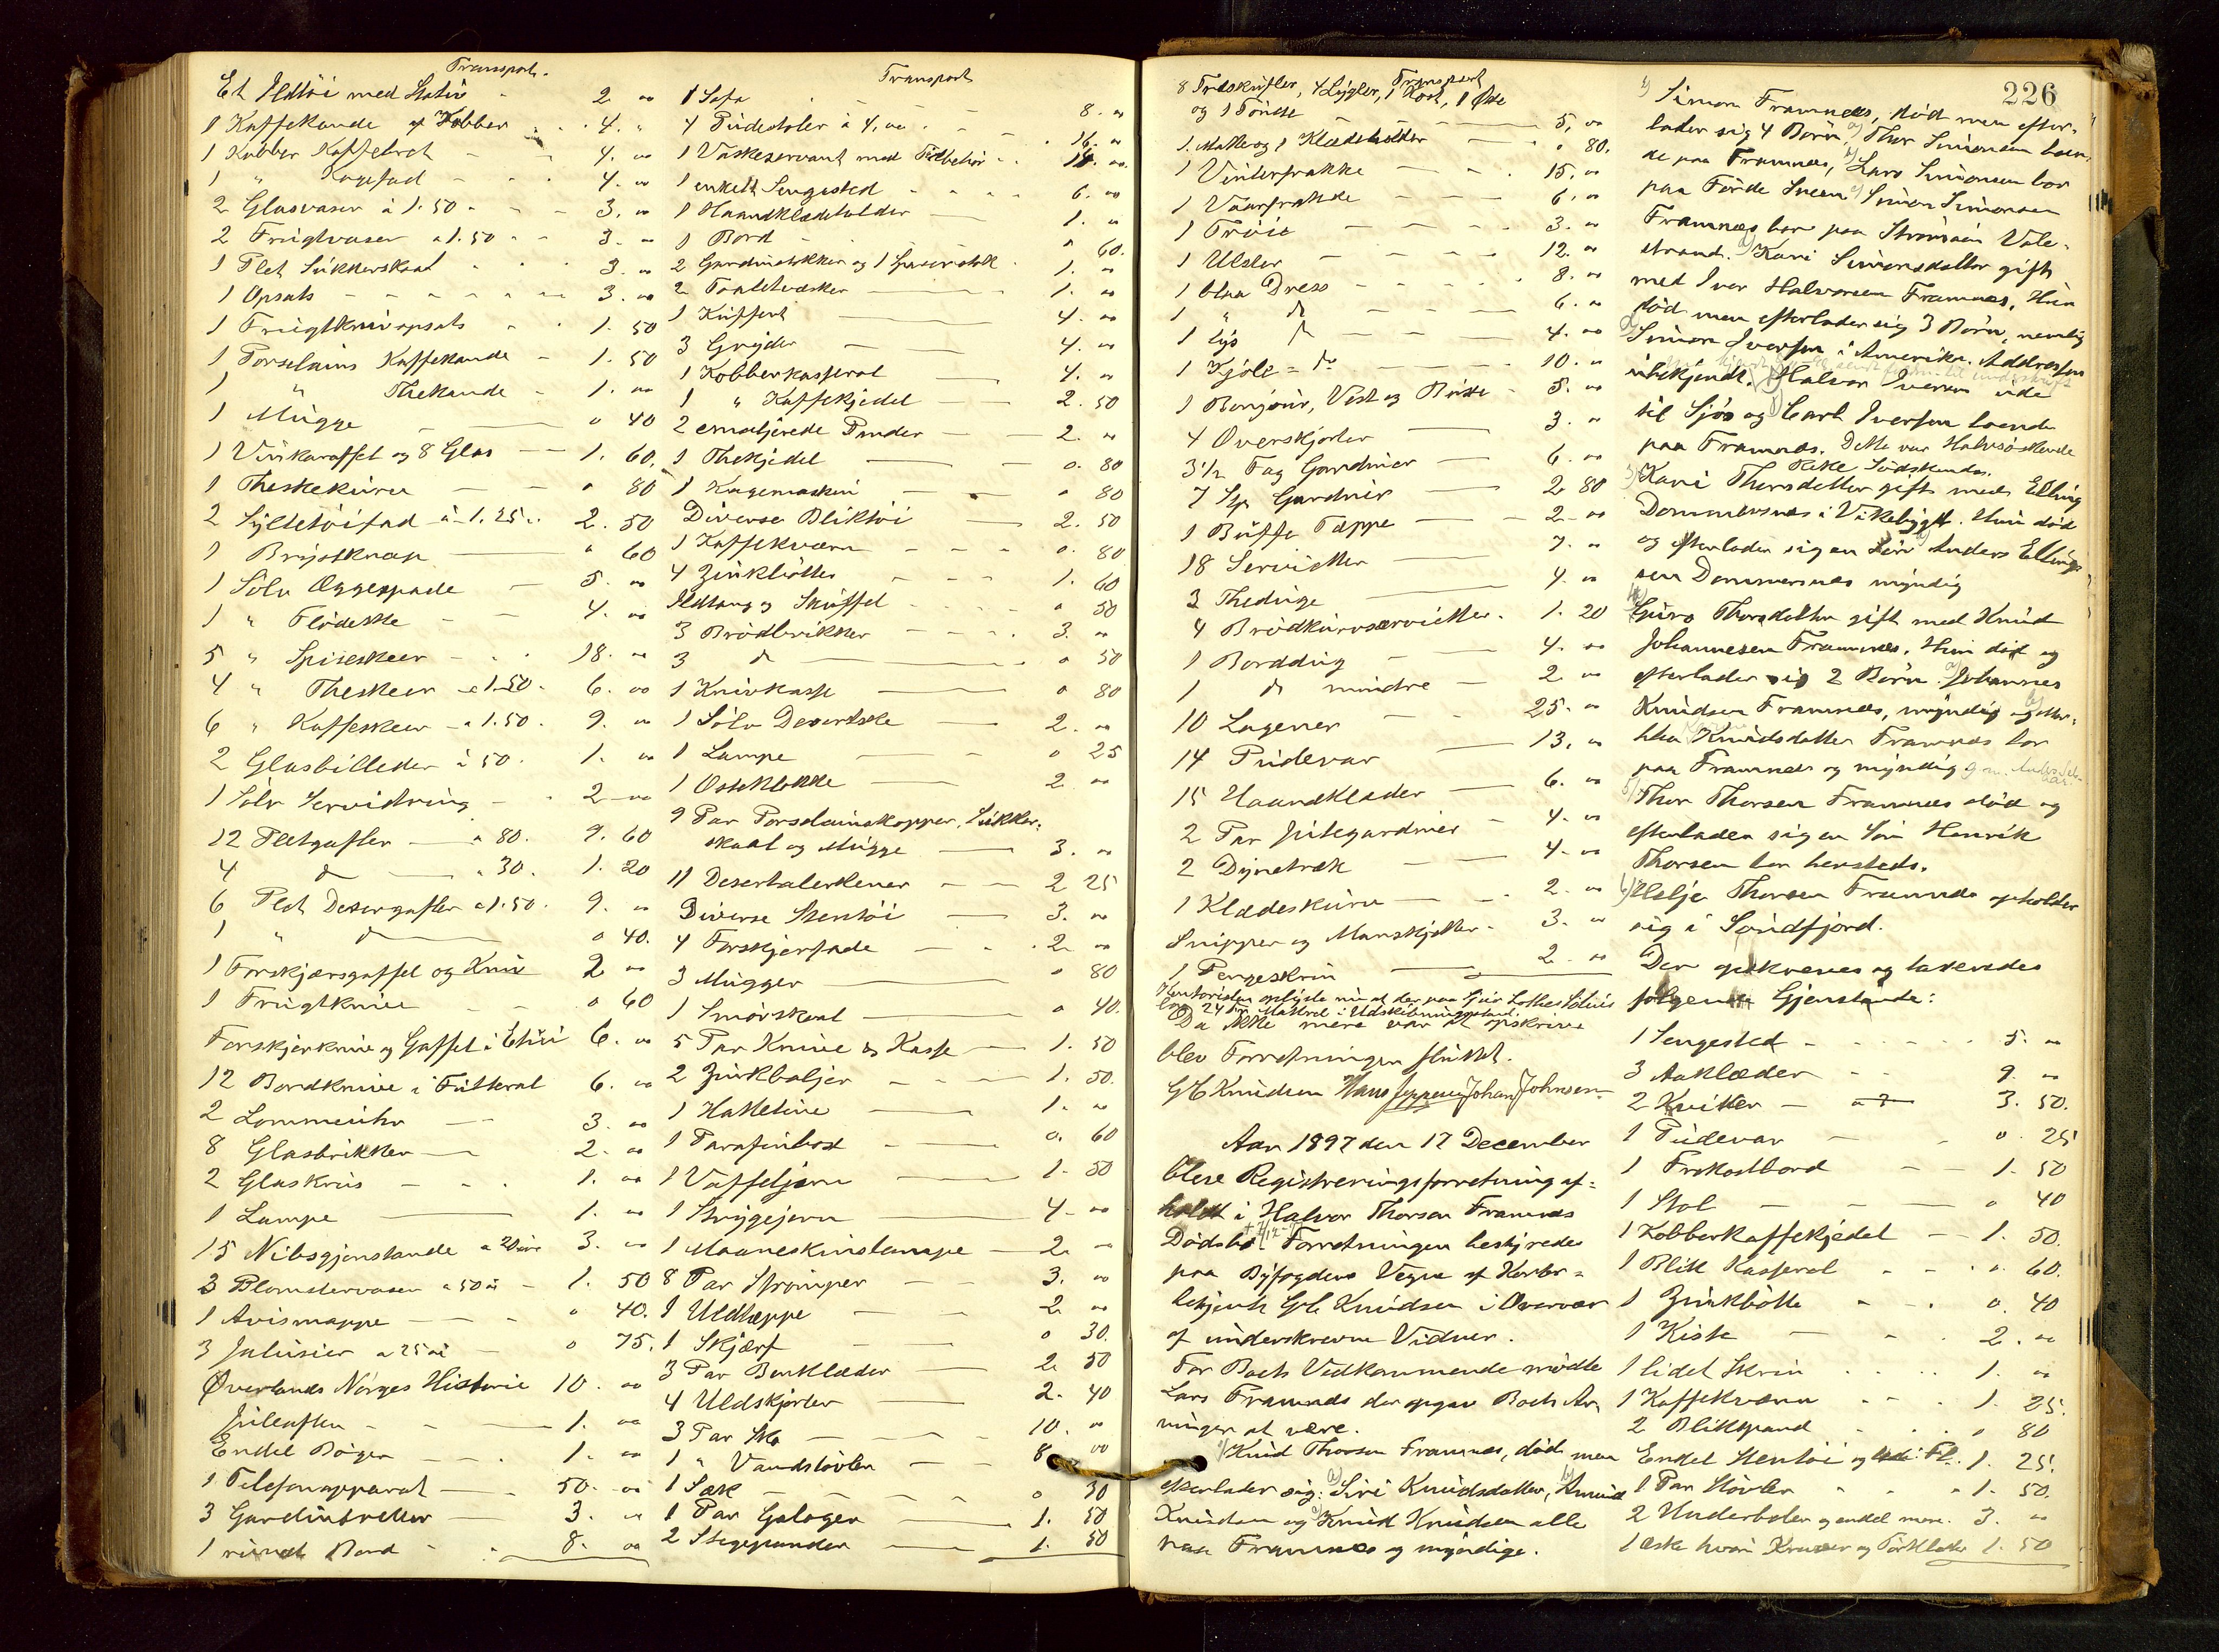 Transport.
Et Ildtöi med Stativ - 2 "
1 Kaffekande af Kobber - 4. "
1 Kobber Kaffebret - 4. "
1 " Kagefad - 4. "
2 Glasvaser à 1.50 - 3. "
2 Frugtvaser à 1.50 - 3. "
1 Plet Sukkerskaal - 3. "
1 Opsats - 3. "
1 Frugtknivopsats - 1. 50
1 Porselains Kaffekande - 1. 50
1 " Thekande - 1. "
1 Mugge - o 40
1 Vinkaraffel og 8 Glas - 1. 60.
1 Theskekurv - o 80
2 Syltetöifad à 1.25 - 2. 50
1 Brystknap - o 60
1 Sölv Æggespade - 5. "
1 " Flödeske - 4. "
5 " Spiseskeer - 18. "
4 " Theskeer à 1.50 - 6. "
6 " Kaffeskeer à 1.50 - 9. "
2 Glasbilleder à 50 - 1. "
1 Sölv Servietring - 2 "
12 Pletgafler à 80. 9. 60
4 do à 30. 1. 20
6 Plet Desergafler à 1.50. 9. "
1 " do o 40.
1 Forskjærsgaffel og Kniv 2 "
1 Frugtkniv - o 60
Forskjerkniv og Gaffel i Etui 6. "
12 Bordknive i Futteral 6. "
2 Lommeuhr - 3. "
8 Glasbrikker - 2. "
2 Glaskrus - 1. "
1 Lampe - 1. "
15 Nibsgjenstande à 20 öre 3. "
3 Blomstervaser à 50 ö - 1. 50
1 Avismappe - o 40.
3 Jalusier à 25 ö - o 75.
Øverlands Norges Historie 10. "
Juleaften - 1. "
Endel Böger - 1. "
1 Telefonapparat - 50. "
3 Gardinbretter - 3. "
1 rundt Bord - 8. "
Transport
1 Sofa - 8. "
4 Pudestoler à 4,00 - 16. "
1 Vaskeservant med Tilbehör - 14. "
1 enkelt Sengested - 6. "
1 Haandklædeholder - 1. "
1 Bord - o 60.
2 Gardinstokker og 1 Spaserstok - 1. "
2 Toiletvæsker - 1. "
1 Kuffert - 4. "
3 Gryder - 4. "
1 Kobberkasserol - 4. "
1 " Kaffekjedel - 2. 50
2 emaljerede Pander - 2. "
1 Thekjedel - o. 80
1 Kagemaskin - o 80
Diverse Bliktöi - 2. 50
1 Kaffekværn - o. 80
4 Zinkbötter - 1. 60
Ildtang og Skuffel - o 50
3 Brödbrikker - 3. "
3 do - o 50
1 Knivkasse - o 80
1 Sölv Desertske - 2. "
1 Lampe - o 25
1 Osteklokke - 2 "
9 Par Porselainskopper, Sukker-
skaal og Mugge - 3. "
11 Desertalerkener - 2 25
Diverse Stentöi - 3. "
4 Forskjerfade - 2 "
3 Mugger - o 80
1 Smörskaal - o 40.
5 Par Knive og Kasse - 1. 50
2 Zinkbaljer - 1. 50.
1 Hattetine - 1. "
1 Parafinbox - o. 60
1 Vaffeljern - 1. 50
1 Strygejern - 4. "
1 Maaneskinslampe - 2. "
8 Par Strömper - 3. "
1 Uldtæppe - 2 "
1 Skjærf - o 30.
3 Par Benklæder - 2 50
4 Uldskjorter - 2. 40
3 Par Sko - 10. "
1 " Vandstövler - 8 "
1 Sæk - o 30
1 Par Galoger - 1. 50
2 Stegepander - 1. 50
Transport
8 Træskufler, 4 Lygter, 1 Kost, 1 Øse
og 1 Tönde - 5. "
1 Matte og 1 Klædeholder - o 80.
1 Vinterfrakke - 15. "
1 Vaarfrakke - 6. "
1 Tröie - 3. "
1 Ulster - 12. "
1 blaa Dress - 8. "
1 " do - 6. "
1 lys do - 4. "
1 Kjole = do - 10. "
1 Bonjour, Vest og Buxe - 5. "
4 Overskjorter - 3. "
3 1/2 Fag Gardiner - 6. "
7 Stp Gardiner - 2 80
1 Buffe Tæppe - 2 "
18 Servietter - 7. "
3 Theduge - 4. "
4 Brödkurvservietter - 1. 20
1 Borddug - 4. "
1 do mindre - 2 "
10 Lagener - 25. "
14 Pudevar - 13. "
15 Haandklæder - 6. "
2 Par Julegardiner - 4. "
2 Dynetræk - 4. "
1 Klædeskurv - 2. "
Snipper og Manskjetter - 3. "
1 Pengeskrin - 2. "
Da ikke mere var at opskrive
blev Forretningen sluttet.
G C Knudsen Hans Jeppesen Johan Johnsen.
Aar 1897 den 17 December
blev Registreringsforretning af-
holdt i Halvor Thorsen Framnæs
Dödsbo. Forretningen bestyredes
paa Byfogdens Vegne af Konter-
betjent G C Knudsen i Overvær
af underskrevne Vidner.
For Boets Vedkommende mödte
Lars Framnæs der opgav Boets Ar-
vinger at være.
1) Knud Thorsen Framnæs, död men
efterlader sig: a) Siri Knudsdatter, b) Amund
Knudsen og c) Knud Knudsen alle
paa Framnæs og myndige.
226
2) Simon Framnæs, död men efter-
lader sig 4 Börn, a) Thor Simonsen boen-
de paa Framnæs, b) Lars Simonsen bor
paa Förde Sveen c) Simon Simonsen
Framnæs bor paa Strömöen Vale-
strand. d) Kari Simonsdatter gift
med Iver Halvorsen Framnæs, Hun
död men efterlader sig 3 Börn, nemlig
a) Simon Iversen i Amerika. Addressen
ubekjendt. b) Halvor Iversen ude
til Sjös og c) Carl Iversen boende
paa Framnæs. Dette var Halvsöskende
Ikke Södskende.
3) Kari Thorsdatter gift med Elling
Dommersnæs i Vikebygd. Hun död
og efterlader sig en Sön a) Anders Elling-
sen Dommersnæs myndig
4) Guro Thorsdatter gift med Knud
Johannesen Framnæs. Hun död og
efterlader sig 2 Börn. a) Johannes
Knudsen Framnæs, myndig og b) Mar-
tha Knudsdatter Framnæs bor
paa Framnæs og myndig
5) Thor Thorsen Framnæs död og
efterlader sig en Sön Henrik
Thorsen bor hersteds.
6) Helje Thorsen Framnæs opholder
sig i Söndfjord.
Der opskreves og taxeredes
fölgende Gjenstande:
1 Sengested - 5. "
3 Aaklæder - 9. "
2 Kvitler - 3. 50.
1 Pudevar - o. 25
1 Frokostbord - 1. 50
1 Stol - o 40
1 Kobberkaffekjedel - 1. 50.
1 Blik Kasserol - o. 60.
1 Zinkbötte - o. 40
1 Kiste - 2. "
1 lidet Skrin - 1. "
1 Kaffekværn - 1. 25.
2 Blikspand - o 80
Endel Stentöi 1. 25.
1 Par Stövler - 1. 50.
2 Underboler og endel mere. 3. "
1 æske hvori Kraver og Törklæder 1. 50